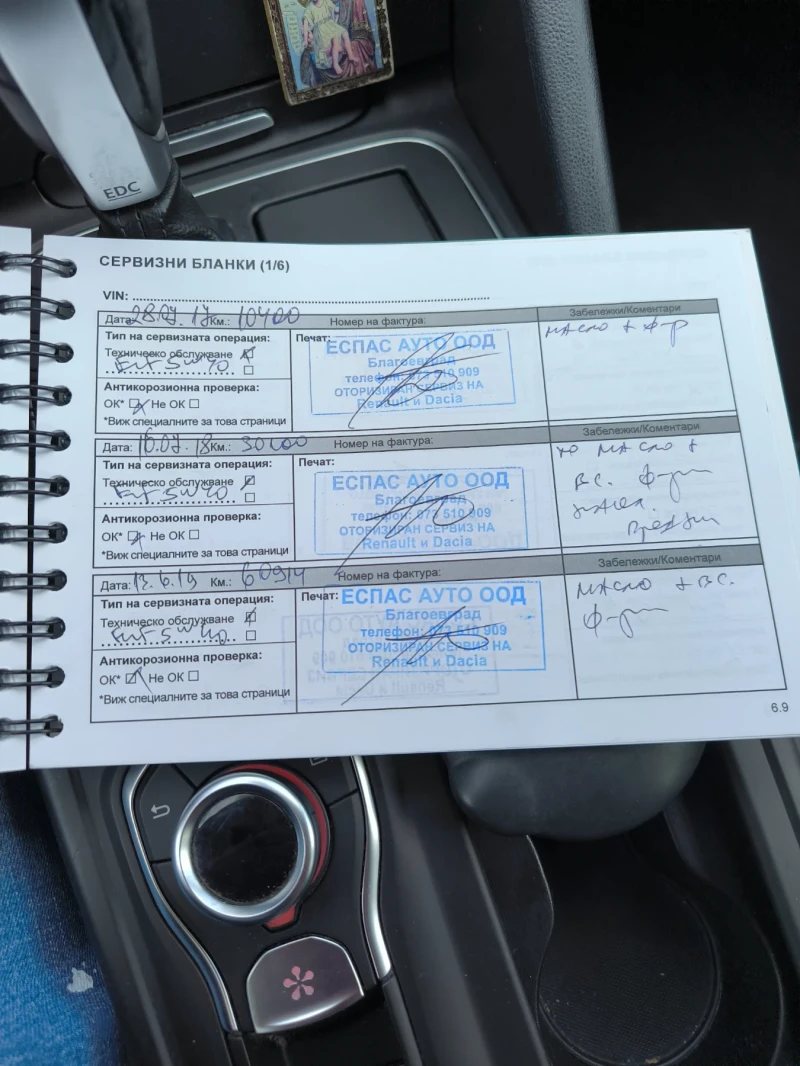 EDC
СЕРВИЗНИ БЛАНКИ (1/6)
VIN:
Дата: 28.07.17 Км.: 10400 Номер на фактура: Забележки/Коментари
Тип на сервизната операция: Печат: масло + ф-р
Техническо обслужване
5W40
Антикорозионна проверка:
ОК* Не ОК
*Виж специалните за това страници
ЕСПАС АУТО ООД
Благоевград
телефон: 073 510 909
ОТОРИЗИРАН СЕРВИЗ НА
Renault и Dacia
Дата: 10.07.18 Км.: Номер на фактура: Забележки/Коментари
Тип на сервизната операция: Печат: масло +
Техническо обслужване
5W40
Антикорозионна проверка:
ОК* Не ОК
*Виж специалните за това страници
ЕСПАС АУТО ООД
Благоевград
телефон: 073 510 909
ОТОРИЗИРАН СЕРВИЗ НА
Renault и Dacia
вс. ф-ри
Дата: 13.6.19 Км.: 60914 Номер на фактура: Забележки/Коментари
Тип на сервизната операция: Печат: масло + вс.
Техническо обслужване
5W40
Антикорозионна проверка:
ОК* Не ОК
*Виж специалните за това страници
ЕСПАС АУТО ООД
Благоевград
телефон: 073 510 909
ОТОРИЗИРАН СЕРВИЗ НА
Renault и Dacia
ф-ри
6.9